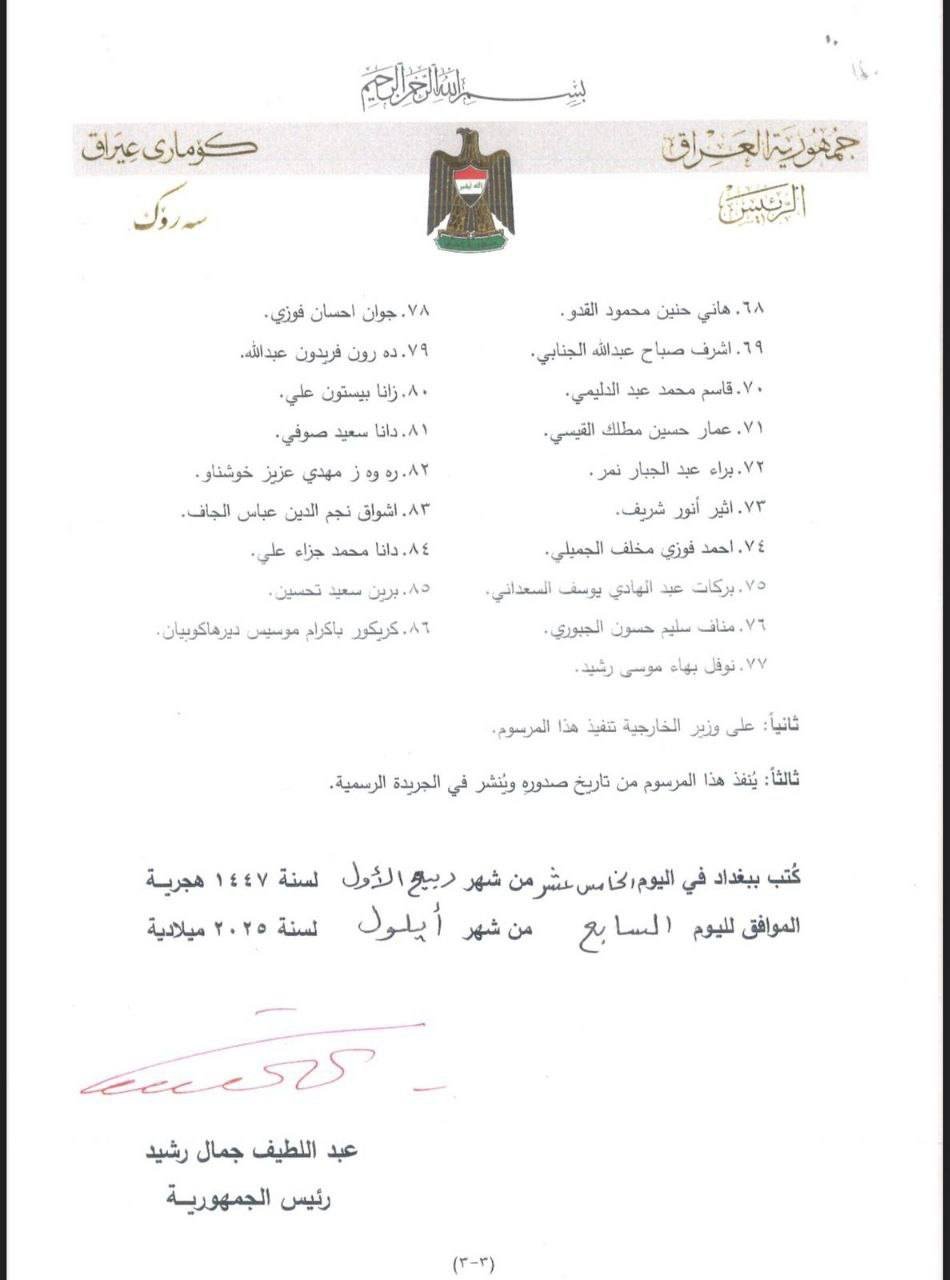 بسم الله الرحمن الرحيم
جمهورية العراق
كۆماری عێراق
الرئيس
سه رۆك
٦٨. هاني حنين محمود القدو.
٦٩. اشرف صباح عبدالله الجنابي.
٧٠. قاسم محمد عبد الدليمي.
٧١. عمار حسين مطلك القيسي.
٧٢. براء عبد الجبار نمر.
٧٣. اثير أنور شريف.
٧٤. احمد فوزي مخلف الجميلي.
٧٥. بركات عبد الهادي يوسف السعداني.
٧٦. مناف سليم حسون الجبوري.
٧٧. نوفل بهاء موسى رشيد.
٧٨. جوان احسان فوزي.
٧٩. ده رون فريدون عبدالله.
٨٠. زانا بيستون علي.
٨١. دانا سعيد صوفي.
٨٢. ره وه ز مهدي عزيز خوشناو.
٨٣. اشواق نجم الدين عباس الجاف.
٨٤. دانا محمد جزاء علي.
٨٥. برين سعيد تحسين.
٨٦. كريكور باكرام موسيس ديرهاكوبيان.
ثانياً: على وزير الخارجية تنفيذ هذا المرسوم.
ثالثاً: يُنفذ هذا المرسوم من تاريخ صدوره ويُنشر في الجريدة الرسمية.
كُتب ببغداد في اليوم الخامس عشر من شهر ربيع الأول لسنة ١٤٤٧ هجريـة
الموافق لليوم السابع من شهر أيلول لسنة ٢٠٢٥ ميلادية
عبد اللطيف جمال رشيد
رئيس الجمهوريـة
(٣-٣)